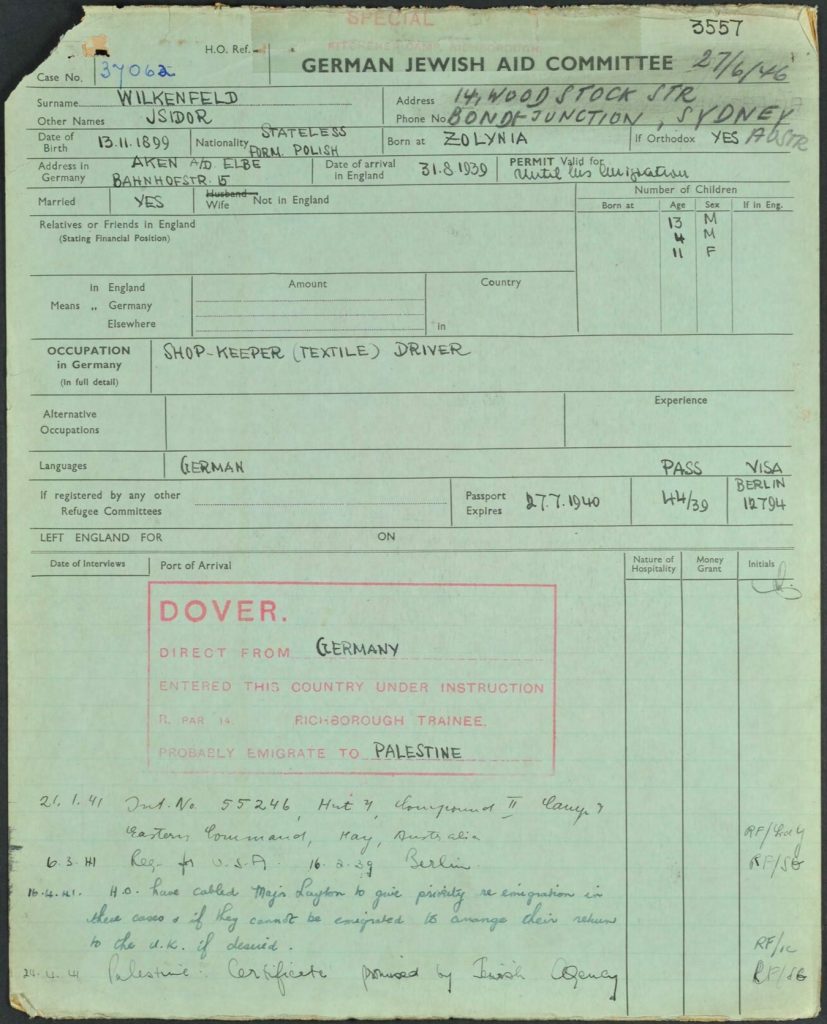 SPECIAL
3557
KITCHENER CAMP, RICHBOROUGH.
H.O. Ref.
GERMAN JEWISH AID COMMITTEE 27/6/46
Case No. 37062
Surname WILKENFELD Address 14, WOODSTOCK STR
Other Names JSIDOR Phone No. BONDI-JUNCTION, SYDNEY
Date of Birth 13.11.1899 Nationality STATELESS FORM. POLISH Born at ZOLYNIA If Orthodox YES AUSTR
Address in Germany AKEN A/D ELBE BAHNHOFSTR. 15 Date of arrival in England 31.8.1939 PERMIT Valid for until his emigration
Married YES Husband Wife Not in England Number of Children
Born at Age Sex If in Eng.
Relatives or Friends in England 13 M
(Stating Financial Position) 4 M
11 F
In England Amount Country
Means „ Germany
Elsewhere in
OCCUPATION SHOP-KEEPER (TEXTILE) DRIVER
in Germany
(In full detail)
Experience
Alternative
Occupations
Languages GERMAN PASS VISA
If registered by any other Refugee Committees Passport Expires 27.7.1940 44/39 BERLIN 12794
LEFT ENGLAND FOR ON
Date of Interviews Port of Arrival Nature of Hospitality Money Grant Initials
DOVER.
DIRECT FROM GERMANY
ENTERED THIS COUNTRY UNDER INSTRUCTION
R. PAR 14. RICHBOROUGH TRAINEE.
PROBABLY EMIGRATE TO PALESTINE
21.1.41 Int. No. 55246, Hut 4, Compound II Camp 7
Eastern Command, Hay, Australia RF/
6.3.41 Reg. for U.S.A. 16.2.39 Berlin. RF/SG
16.4.41. H.O. have cabled Major Layton to give priority re emigration in
these cases & if they cannot be emigrated to arrange their return
to the U.K. if desired. RF/
24.4.41 Palestine: Certificate promised by Jewish Agency RF/SG